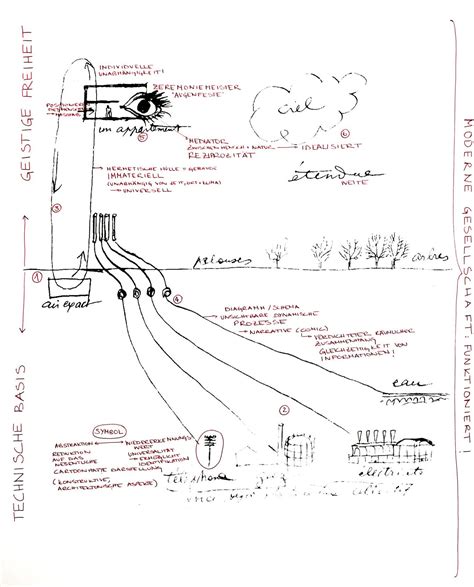 INDIVIDUELLE
UNABHÄNGIGKEIT!
ZEREMONIEMEISTER
"AUGENFESTE"
ciel
un appartement
5
6
MEDIATOR
ZWISCHEN MENSCH + NATUR
REZIPROZITÄT
IDEALISIERT
étendue
WEITE
HERMETISCHE HÜLLE = GEBÄUDE
IMMATERIELL
(UNABHÄNGIG VON ZEIT, ORT + KLIMA)
→ UNIVERSELL
3
GEISTIGE FREIHEIT
MODERNE GESELLSCHAFT: FUNKTIONIERT!
pelouses
arbres
1
air exact
4
DIAGRAMM / SCHEMA
UNSICHTBARE DYNAMISCHE
PROZESSE
→ NARRATIVE (COMIC)
→ VERDICHTETER RÄUMLICHER
ZUSAMMENHANG
GLEICHZEITIGKEIT VON
INFORMATIONEN!
TECHNISCHE BASIS
eau
2
SYMBOL
ABSTRAKTION
REDUKTION
AUF DAS
WIEDERERKENNUNGS-
WERT
UNIVERSALITÄT
ERMÖGLICHT
IDENTIFIKATION
CARTOONHAFTE DARSTELLUNG
(KONSTRUKTIVE,
ARCHITEKTONISCHE ASPEKTE)
téléphone
électricité